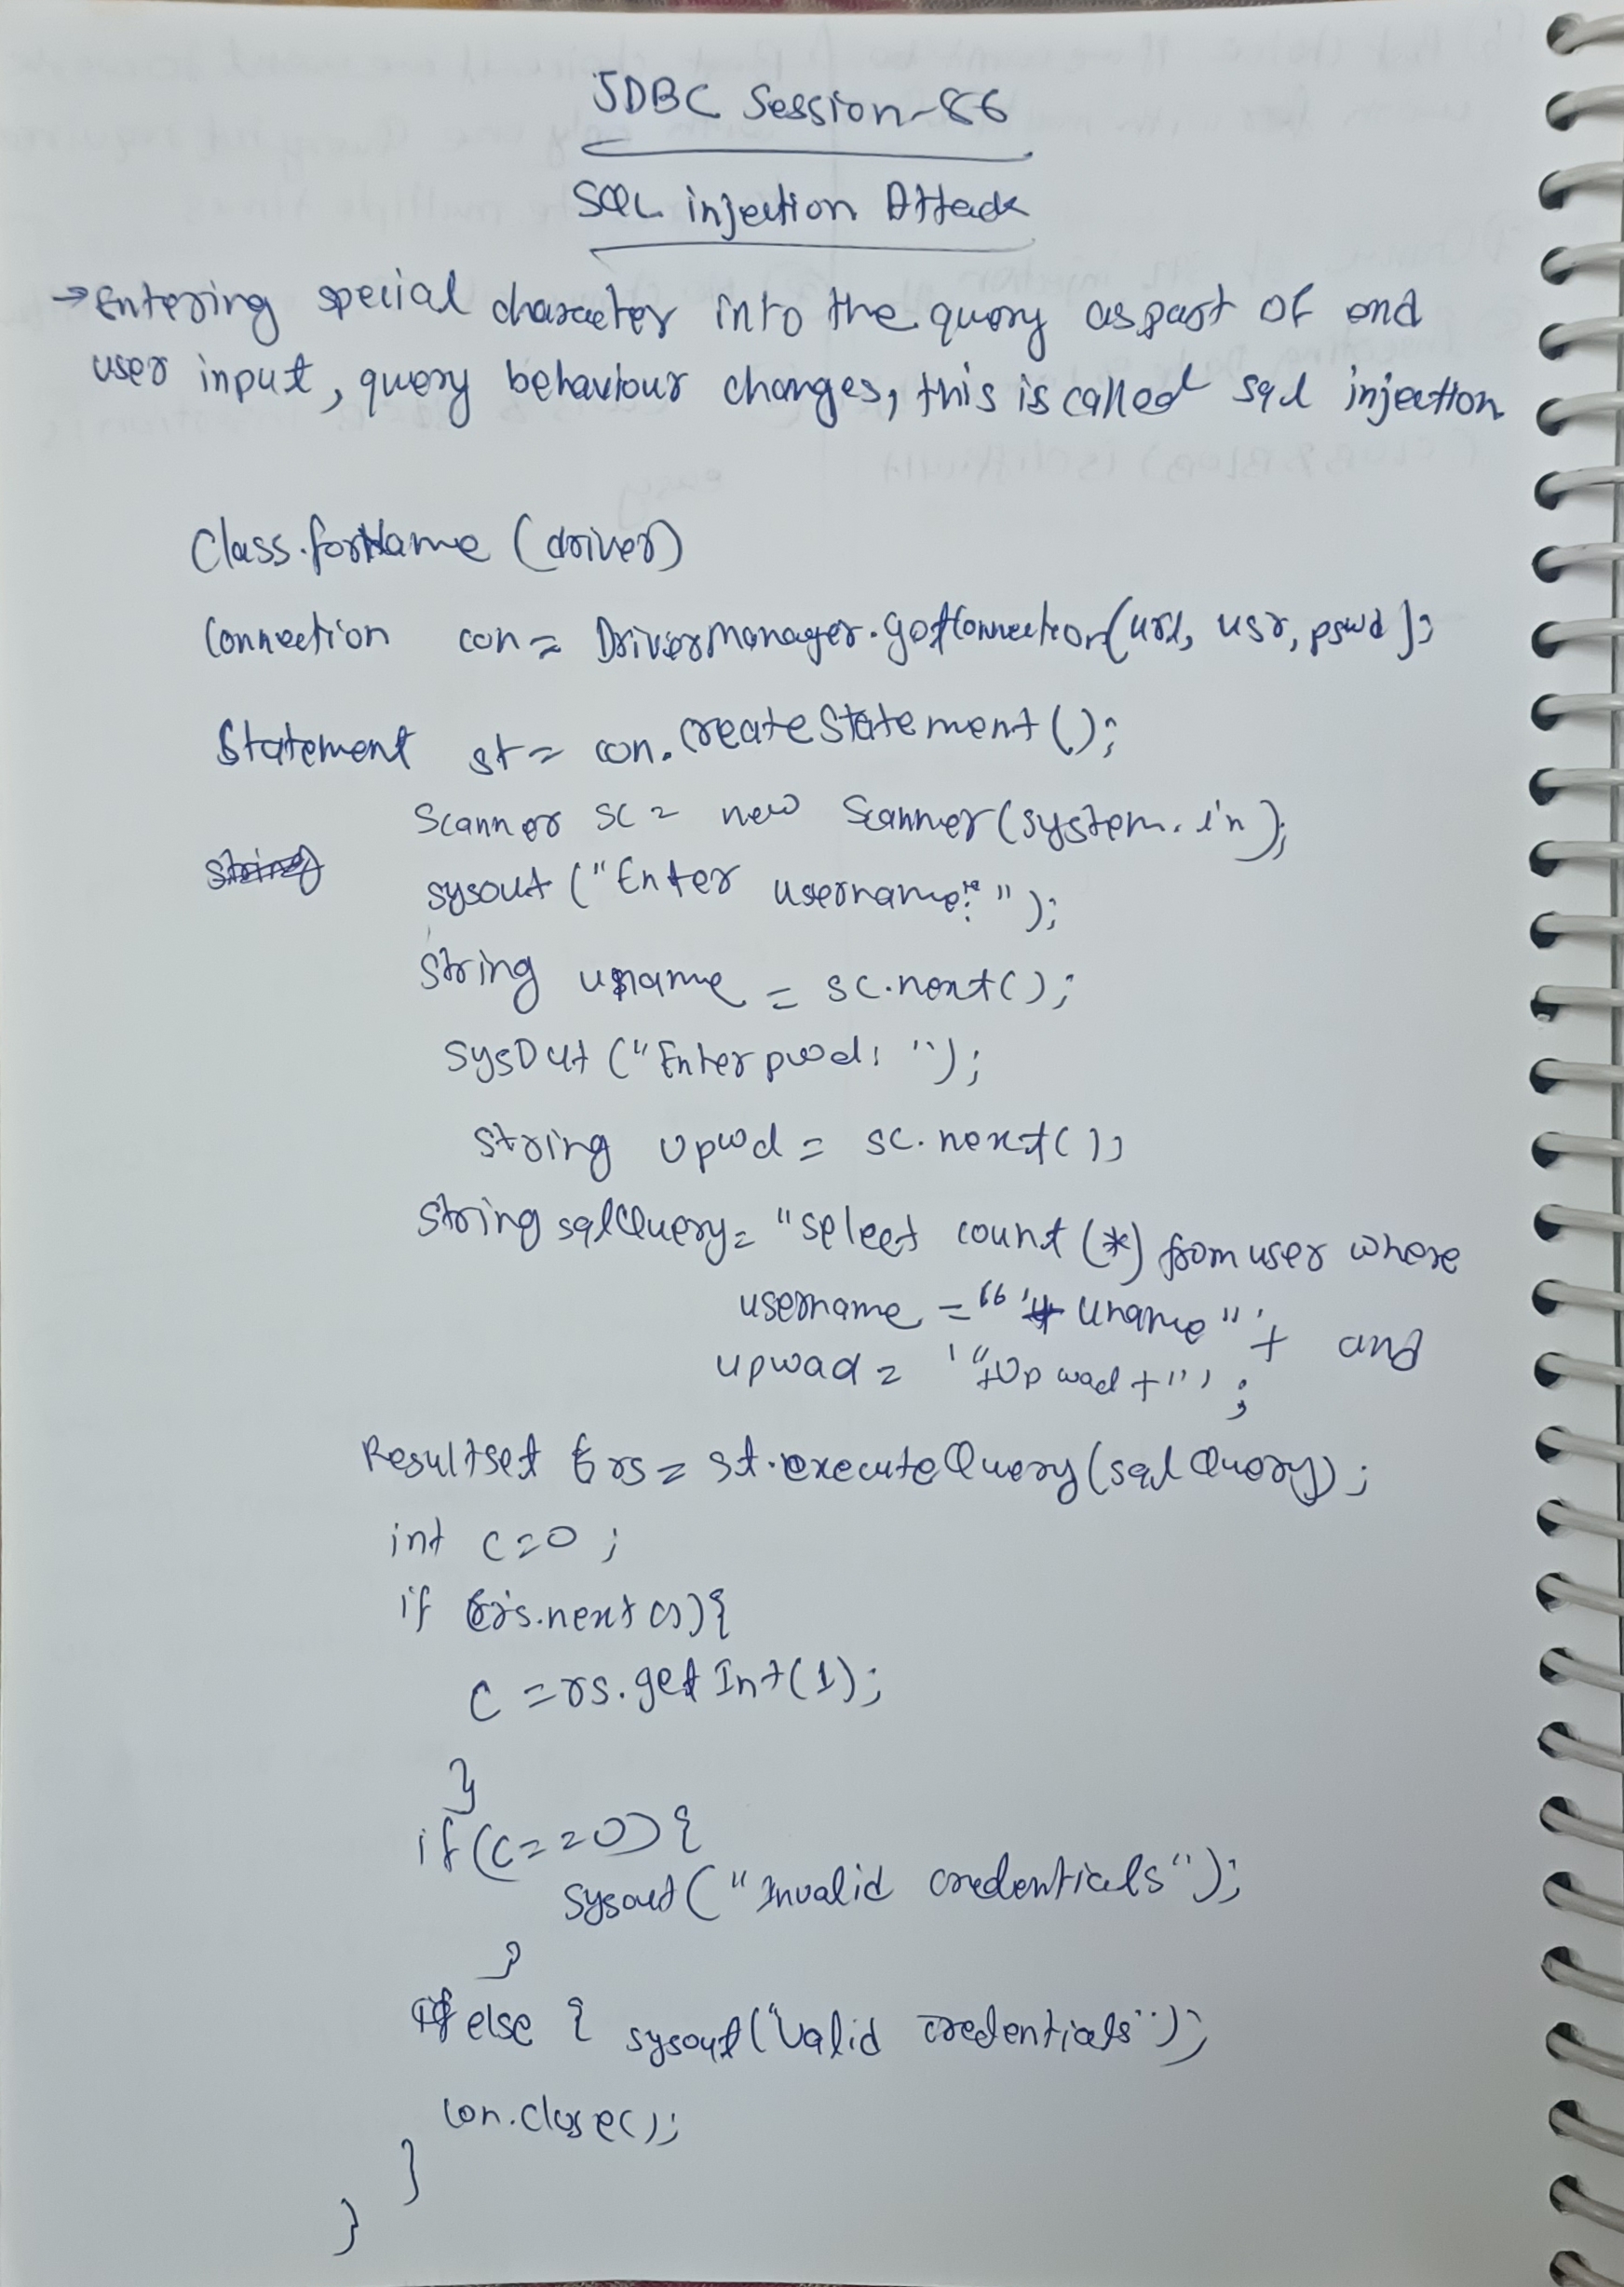 JDBC Session-86
SQL injection Attack
→ Entering special character into the query as part of end
user input, query behaviour changes, this is called sql injection
Class.forName (driver)
Connection con = DriverManager.getConnection(url, usr, pswd);
Statement st = con.createStatement();
Scanner sc = new Scanner(system.in);
string
sysout ("Enter username: ");
string uname = sc.next();
SysOut ("Enter pwd: ");
string upwd = sc.next();
string sqlQuery = "select count (*) from user where
username = "'+ uname "'+ and
upwad = '"+Upwad+"';
Resultset rs = st.executeQuery(sqlQuery);
int c=0;
if (rs.next()){
c = rs.getInt(1);
}
if (c==0) {
sysout ("Invalid credentials");
}
else { sysout("Valid credentials");
con.close();
}
}